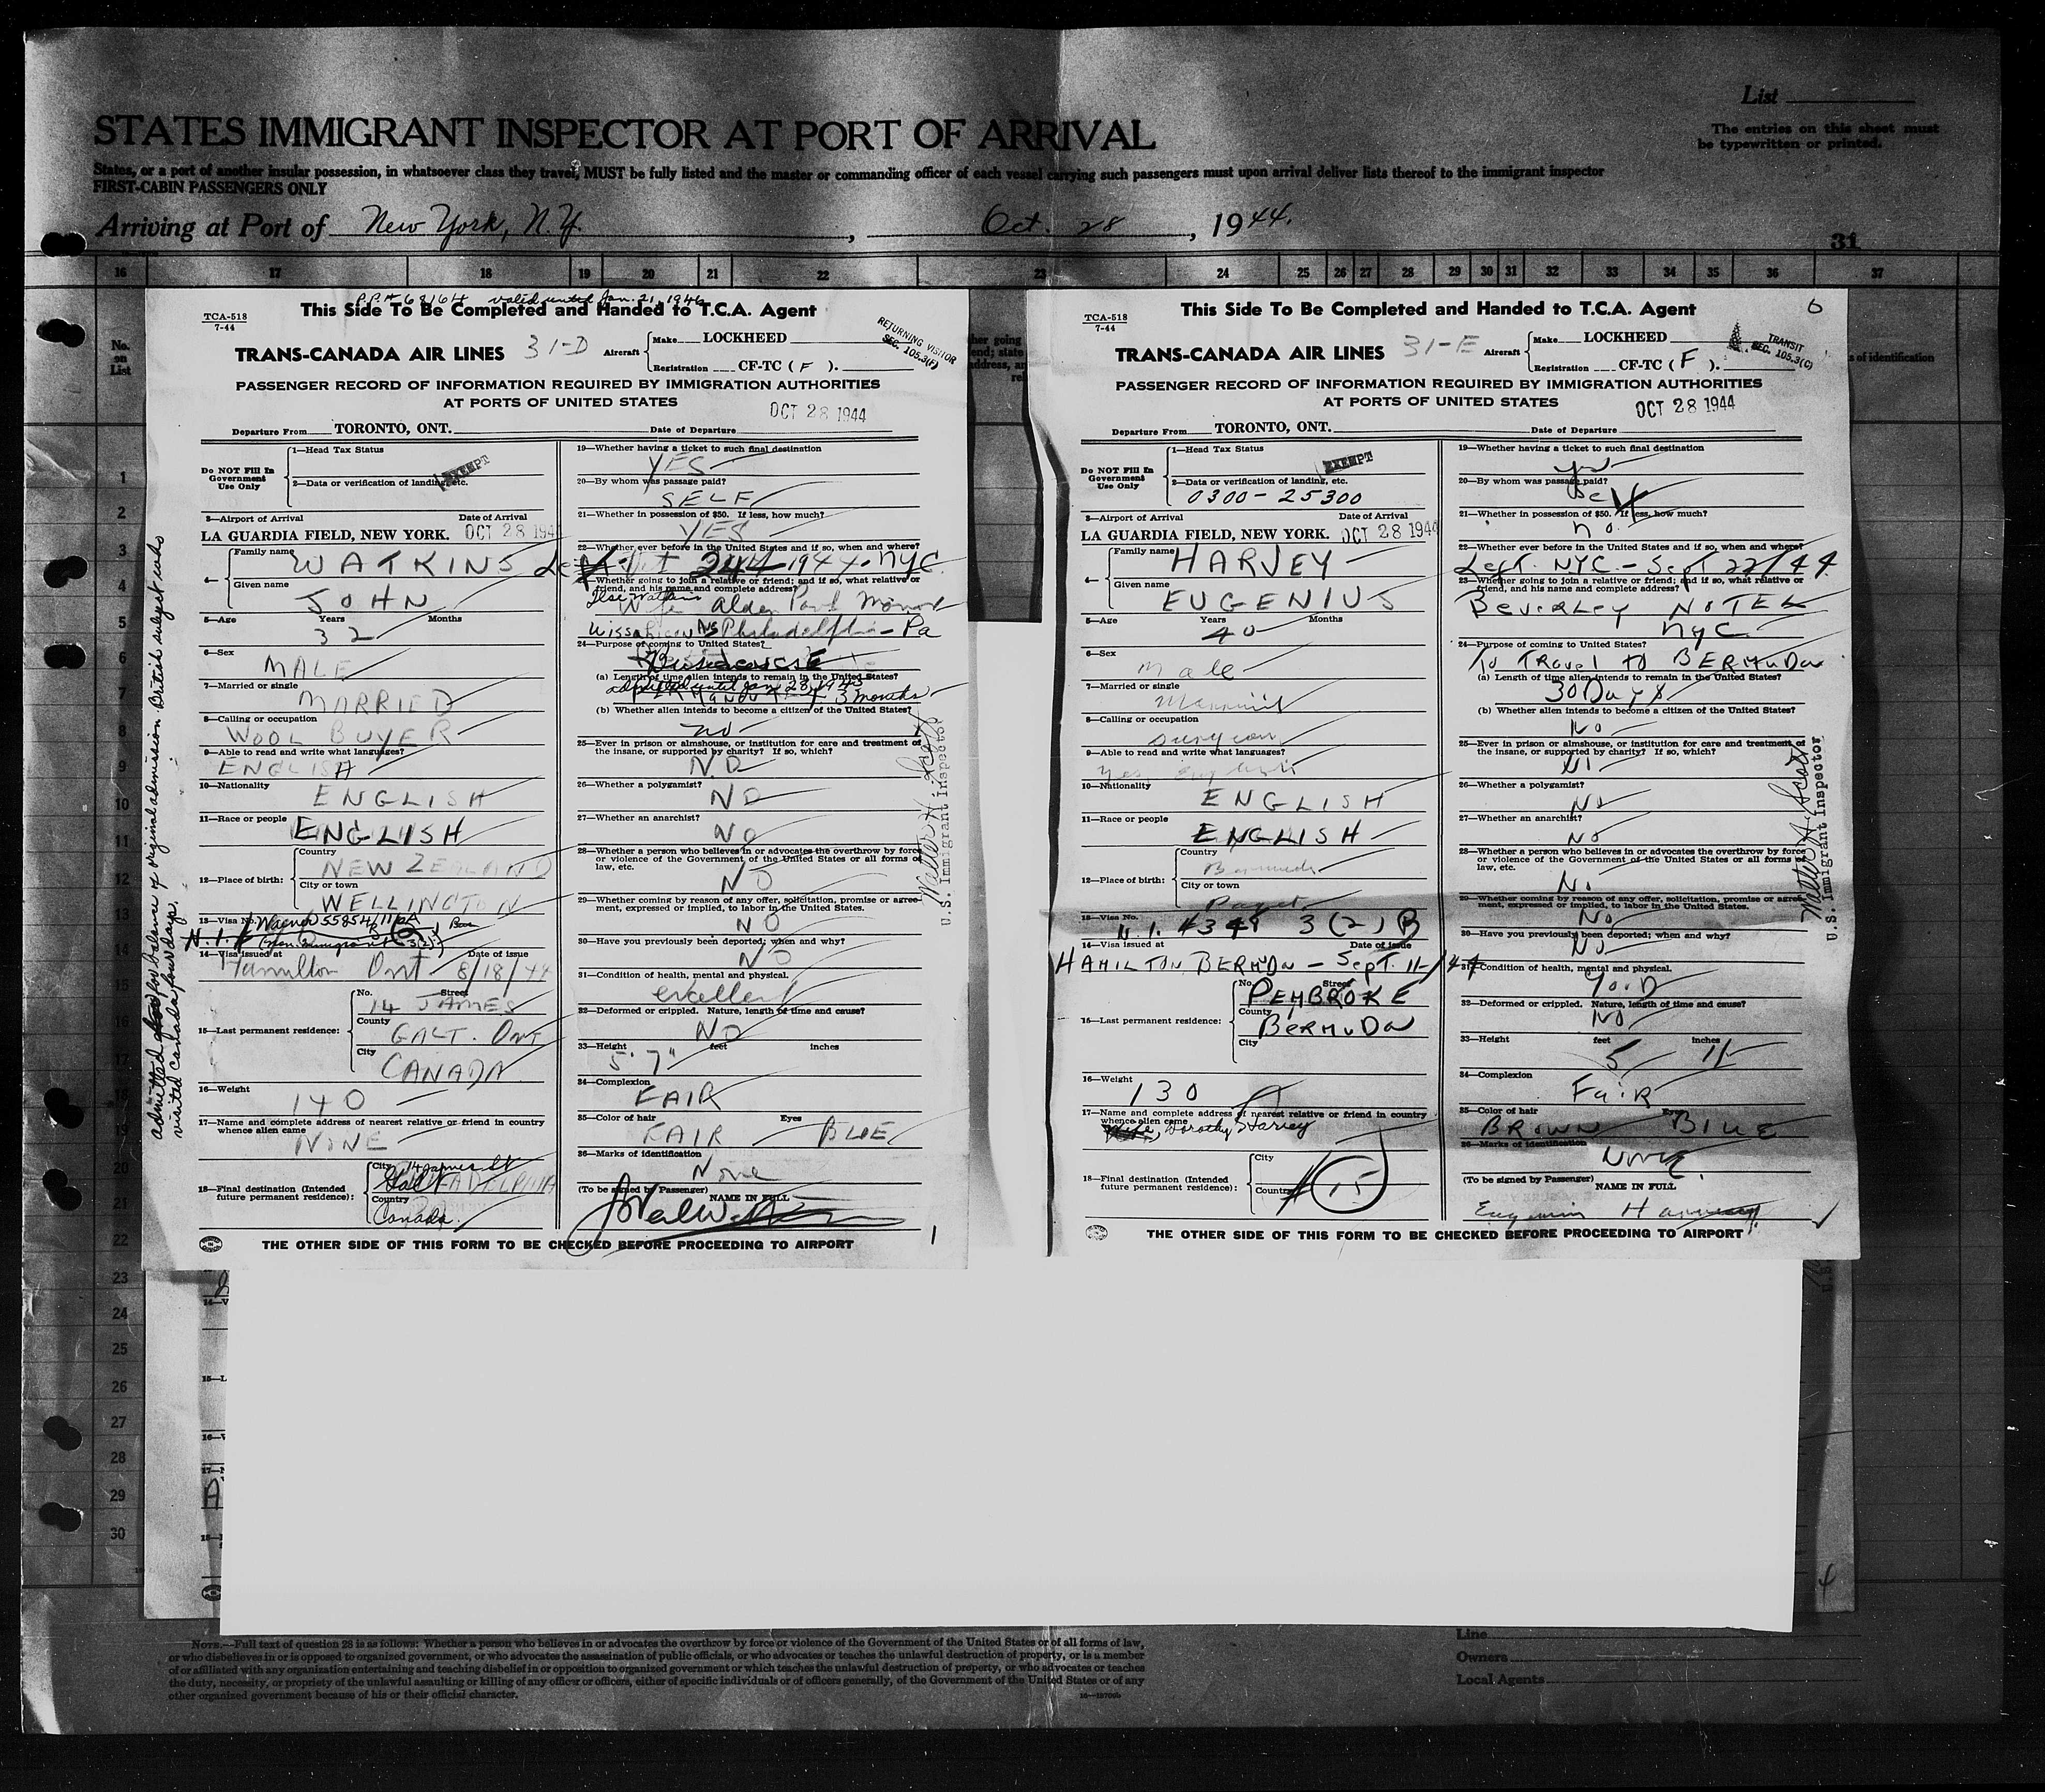 List
The entries on this sheet must
be typewritten or printed.
STATES IMMIGRANT INSPECTOR AT PORT OF ARRIVAL
States, or a port of another insular possession, in whatsoever class they travel, MUST be fully listed and the master or commanding officer of each vessel carrying such passengers must upon arrival deliver lists thereof to the immigrant inspector
FIRST-CABIN PASSENGERS ONLY
Arriving at Port of New York, N.Y. , Oct. 28 , 1944.
31
16 17 18 19 20 21 22 23 24 25 26 27 28 29 30 31 32 33 34 35 36 37
No.
on
List
1
2
3
4
5
6
7
8
9
10
11
12
13
14
15
16
17
18
19
20
21
22
23
24
25
26
27
28
29
30
P.P.# 68164 valid until Jan. 21, 1946
This Side To Be Completed and Handed to T.C.A. Agent
TCA-518
7-44
TRANS-CANADA AIR LINES 31-D
Aircraft Make LOCKHEED
Registration CF-TC ( F ).
RETURNING VISITOR
SEC. 105.3(F)
PASSENGER RECORD OF INFORMATION REQUIRED BY IMMIGRATION AUTHORITIES
AT PORTS OF UNITED STATES
OCT 28 1944
Departure From TORONTO, ONT. Date of Departure
Do NOT Fill In
Government
Use Only
1—Head Tax Status
EXEMPT
2—Data or verification of landing, etc.
3—Airport of Arrival Date of Arrival
LA GUARDIA FIELD, NEW YORK. OCT 28 194
4— Family name WATKINS
Given name JOHN
5—Age Years Months
32
6—Sex
MALE
7—Married or single
MARRIED
8—Calling or occupation
WOOL BUYER
9—Able to read and write what languages?
ENGLISH
10—Nationality
ENGLISH
11—Race or people
ENGLISH
12—Place of birth:
Country
NEW ZEALAND
City or town
WELLINGTON
13—Visa No.
N.I.
14—Visa issued at Date of issue
Hamilton Ont 8/18/44
15—Last permanent residence:
No. Street
14 JAMES
County
GALT. Ont
City
CANADA
16—Weight
140
17—Name and complete address of nearest relative or friend in country
whence alien came
NONE
18—Final destination (Intended
future permanent residence):
City 14 James St
Galt
Country
Canada.
19—Whether having a ticket to such final destination
YES
20—By whom was passage paid?
SELF
21—Whether in possession of $50. If less, how much?
YES
22—Whether ever before in the United States and if so, when and where?
Left Oct 24 1944 - NYC
23—Whether going to join a relative or friend; and if so, what relative or
friend, and his name and complete address?
Ilse Watkins
Wife Alden Park Manor
Wissahicon Ave Philadelphia - Pa
24—Purpose of coming to United States?
(a) Length of time alien intends to remain in the United States?
admitted until Jan 28, 1945
3 months
(b) Whether alien intends to become a citizen of the United States?
no
25—Ever in prison or almshouse, or institution for care and treatment of
the insane, or supported by charity? If so, which?
NO
26—Whether a polygamist?
NO
27—Whether an anarchist?
NO
28—Whether a person who believes in or advocates the overthrow by force
or violence of the Government of the United States or all forms of
law, etc.
NO
29—Whether coming by reason of any offer, solicitation, promise or agree-
ment, expressed or implied, to labor in the United States.
NO
30—Have you previously been deported; when and why?
NO
31—Condition of health, mental and physical.
excellent
32—Deformed or crippled. Nature, length of time and cause?
NO
33—Height feet inches
5' 7"
34—Complexion
FAIR
35—Color of hair Eyes
FAIR BLUE
36—Marks of identification
None
(To be signed by Passenger) NAME IN FULL
THE OTHER SIDE OF THIS FORM TO BE CHECKED BEFORE PROCEEDING TO AIRPORT
1
admitted for balance of original admission. British subject who
visited Canada four days.
Walter H. Scott
U.S. Immigrant Inspector
This Side To Be Completed and Handed to T.C.A. Agent
6
TCA-518
7-44
TRANS-CANADA AIR LINES 31-E
Aircraft Make LOCKHEED
Registration CF-TC ( F ).
TRANSIT
SEC. 105.3(C)
PASSENGER RECORD OF INFORMATION REQUIRED BY IMMIGRATION AUTHORITIES
AT PORTS OF UNITED STATES
OCT 28 1944
Departure From TORONTO, ONT. Date of Departure
Do NOT Fill In
Government
Use Only
1—Head Tax Status
EXEMPT
2—Data or verification of landing, etc.
0300 - 25300
3—Airport of Arrival Date of Arrival
LA GUARDIA FIELD, NEW YORK. OCT 28 1944
4— Family name HARVEY
Given name EUGENIUS
5—Age Years Months
40
6—Sex
Male
7—Married or single
Married
8—Calling or occupation
surgeon
9—Able to read and write what languages?
Yes, English
10—Nationality
ENGLISH
11—Race or people
ENGLISH
12—Place of birth:
Country
Bermuda
City or town
Paget
13—Visa No.
N.I. #349 3 (2) B
14—Visa issued at Date of issue
HAMILTON, BERMUDA - Sept. 11-/44
15—Last permanent residence:
No. Street
PEMBROKE
County
BERMUDA
City
16—Weight
130
17—Name and complete address of nearest relative or friend in country
whence alien came
Wife, Dorothy Harvey
18—Final destination (Intended
future permanent residence):
City
Country
# 15
19—Whether having a ticket to such final destination
yes
20—By whom was passage paid?
Self
21—Whether in possession of $50. If less, how much?
no.
22—Whether ever before in the United States and if so, when and where?
Left. NYC. - Sept 22/44
23—Whether going to join a relative or friend; and if so, what relative or
friend, and his name and complete address?
BEVERLEY HOTEL
NYC
24—Purpose of coming to United States?
To TRAVEL to BERMUDA
(a) Length of time alien intends to remain in the United States?
30 Days
(b) Whether alien intends to become a citizen of the United States?
No
25—Ever in prison or almshouse, or institution for care and treatment of
the insane, or supported by charity? If so, which?
No
26—Whether a polygamist?
No
27—Whether an anarchist?
No
28—Whether a person who believes in or advocates the overthrow by force
or violence of the Government of the United States or all forms of
law, etc.
No
29—Whether coming by reason of any offer, solicitation, promise or agree-
ment, expressed or implied, to labor in the United States.
No
30—Have you previously been deported; when and why?
No
31—Condition of health, mental and physical.
GooD
32—Deformed or crippled. Nature, length of time and cause?
No
33—Height feet inches
5 11
34—Complexion
FaiR
35—Color of hair Eyes
BROWN BlUE
36—Marks of identification
NoNE.
(To be signed by Passenger)
NAME IN FULL
Eugenius Harvey
THE OTHER SIDE OF THIS FORM TO BE CHECKED BEFORE PROCEEDING TO AIRPORT
Walter H. Scott
U.S. Immigrant Inspector
s of identification
4
NOTE.—Full text of question 28 is as follows: Whether a person who believes in or advocates the overthrow by force or violence of the Government of the United States or of all forms of law,
or who disbelieves in or is opposed to organized government, or who advocates the assassination of public officials, or who advocates or teaches the unlawful destruction of property, or is a member
of or affiliated with any organization entertaining and teaching disbelief in or opposition to organized government or which teaches the unlawful destruction of property, or who advocates or teaches
the duty, necessity, or propriety of the unlawful assaulting or killing of any officer or officers, either of specific individuals or of officers generally, of the Government of the United States or of any
other organized government because of his or their official character.
Line
Owners
Local Agents